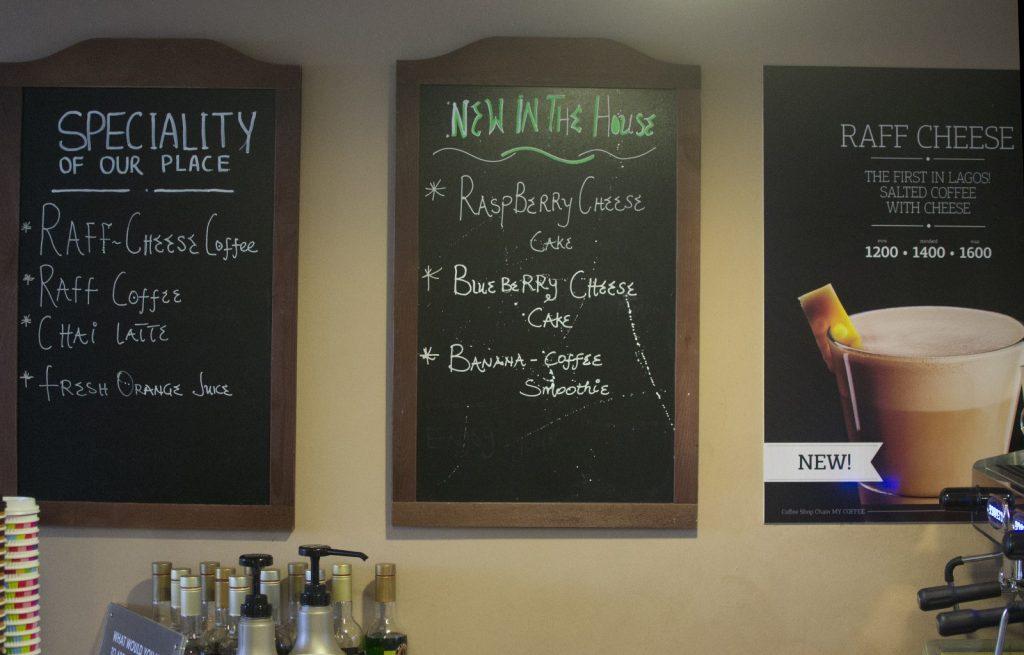 SPECIALITY
OF OUR PLACE
* RAFF-CHEESE COFFEE
* RAFF COFFEE
* CHAI LATTE
* FRESH ORANGE JUICE
NEW IN THE HOUSE
* RASPBERRY CHEESE
CAKE
* BLUEBERRY CHEESE
CAKE
* BANANA - COFFEE
SMOOTHIE
RAFF CHEESE
THE FIRST IN LAGOS!
SALTED COFFEE
WITH CHEESE
mini standard maxi
1200 • 1400 • 1600
NEW!
Coffee Shop Chain MY COFFEE
WHAT WOULD YOU